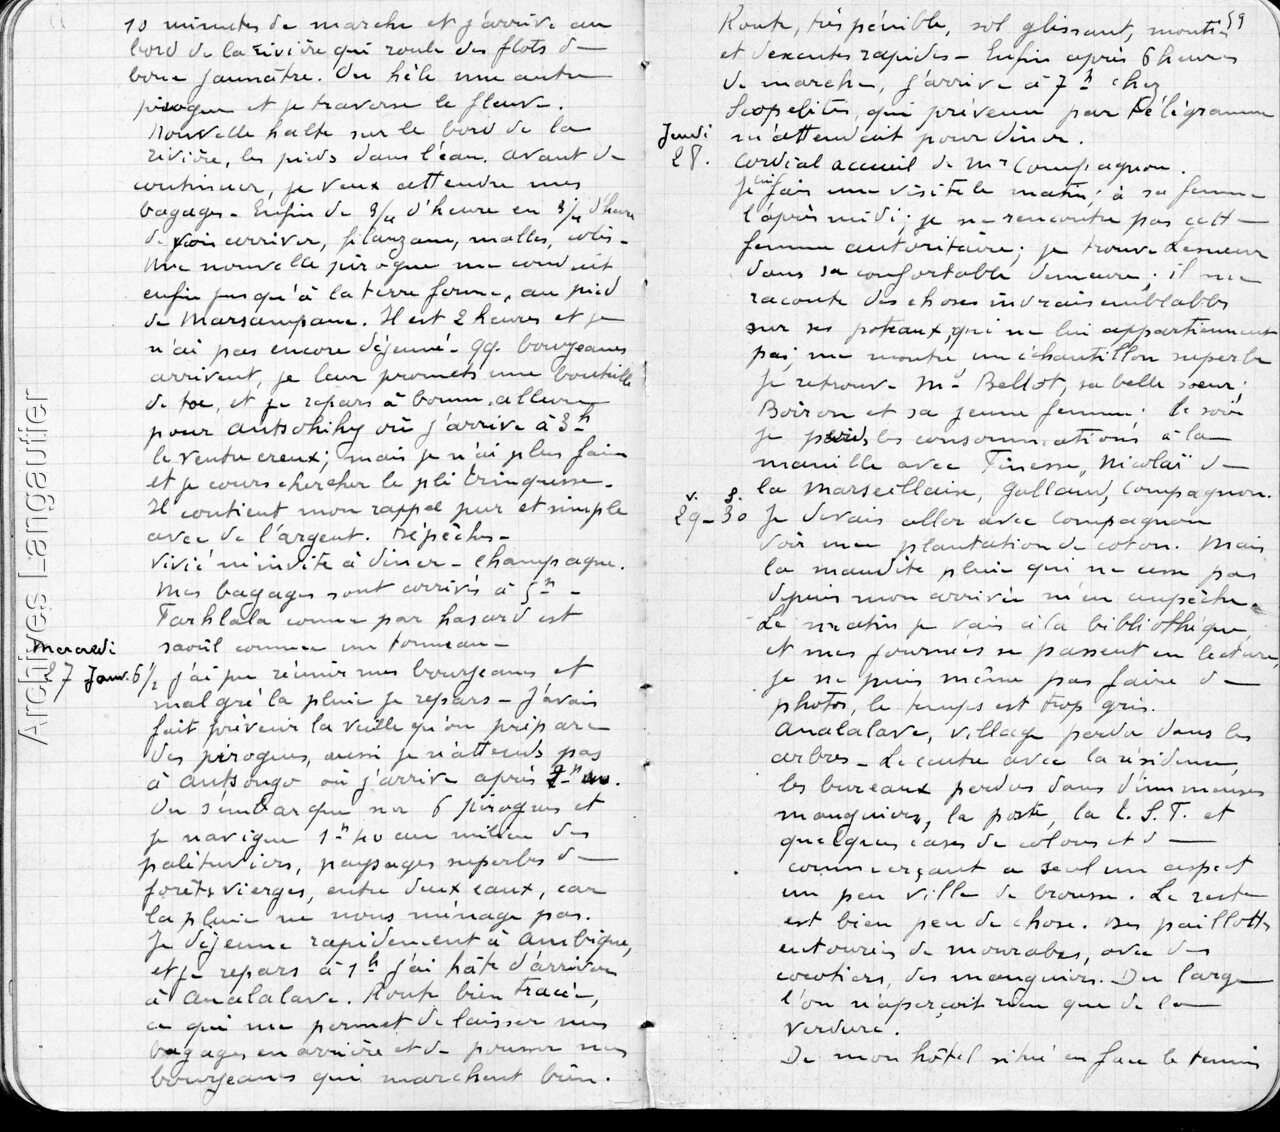 10 minutes de marche et j'arrive au
bord de la rivière qui roule des flots de
boue jaunâtre. On hèle une autre
pirogue et je traverse le fleuve.
Nouvelle halte sur le bord de la
rivière, les pieds dans l'eau. avant de
continuer, je veux attendre mes
bagages - Enfin de 3/4 d'heure en 3/4 d'heure
je vois arriver, filanzane, malles, colis -
Une nouvelle pirogue me conduit
enfin jusqu'à la terre ferme, au pied
de Marsampane. Il est 2 heures et je
n'ai pas encore déjeuné - qq. bourjeanes
arrivent, je leur promets une bouteille
de toc, et je repars à bonne allure
pour Antsohihy où j'arrive à 3h
le ventre creux; mais je n'ai plus faim
et je cours chercher le pli
Il contient mon rappel pur et simple
avec de l'argent. Dépêches -
m'invite à diner - champagne.
Mes bagages sont arrivés à 5h -
Tarhlala comme par hasard est
saoûl comme un tonneau -
Mercredi
27 Janv. 6 1/2 j'ai pu réunir mes bourjeanes et
malgré la pluie je repars - J'avais
fait prévenir la veille qu'on prépare
des pirogues, aussi je n'attends pas
à Antsongo où j'arrive après
On s'embarque sur 6 pirogues et
je navigue 1h 40 au milieu des
palétuviers, paysages superbes de
forêts vierges, entre deux eaux, car
la pluie ne nous ménage pas.
Je déjeune rapidement à Ambique,
et je repars à 1h j'ai hâte d'arriver
à Analalave. Route bien tracée,
ce qui me permet de laisser mes
bagages en arrière et de pousser mes
bourjeanes qui marchent bien.
59
Route, très pénible, sol glissant, montées
et descentes rapides - Enfin après 6 heures
de marche, j'arrive à 7h chez
Scopelitis, qui prévenu par télégramme
m'attendait pour diner.
Jeudi
28. Cordial accueil de Mr Compagnon.
Je lui fais une visite le matin; à sa femme
l'après midi; je ne rencontre pas cette
femme autoritaire; je trouve Lesueur
dans sa confortable demeure; il me
raconte des choses invraisemblables
sur ses poteaux, qui ne lui appartiennent
pas, me montre un échantillon superbe
Je retrouve Mr Bellot, sa belle soeur;
Boiron et sa jeune femme; le soir
je perds les consommations à la
manille avec Finesse, Nicolaï de
la Marseillaise, Galland, Compagnon.
V. S.
29 - 30 Je devais aller avec Compagnon
voir une plantation de coton. Mais
la maudite pluie qui ne cesse pas
depuis mon arrivée m'en empêche.
Le matin je vais à la bibliothèque,
et mes journées se passent en lecture
je ne puis même pas faire de
photos, le temps est trop gris.
Analalave, village perdu dans les
arbres - Le centre avec la résidence,
les bureaux perdus dans d'immenses
manguiers, la poste, la T. S. F. et
quelques cases de colons et de
commerçant a seul un aspect
un peu ville de brousse. Le reste
est bien peu de chose. Des paillottes
entourées de mourabas, avec des
cocotiers, des manguiers. Du large
l'on n'aperçoit rien que de la
verdure.
De mon hôtel situé en face le tennis
Archives Langautier